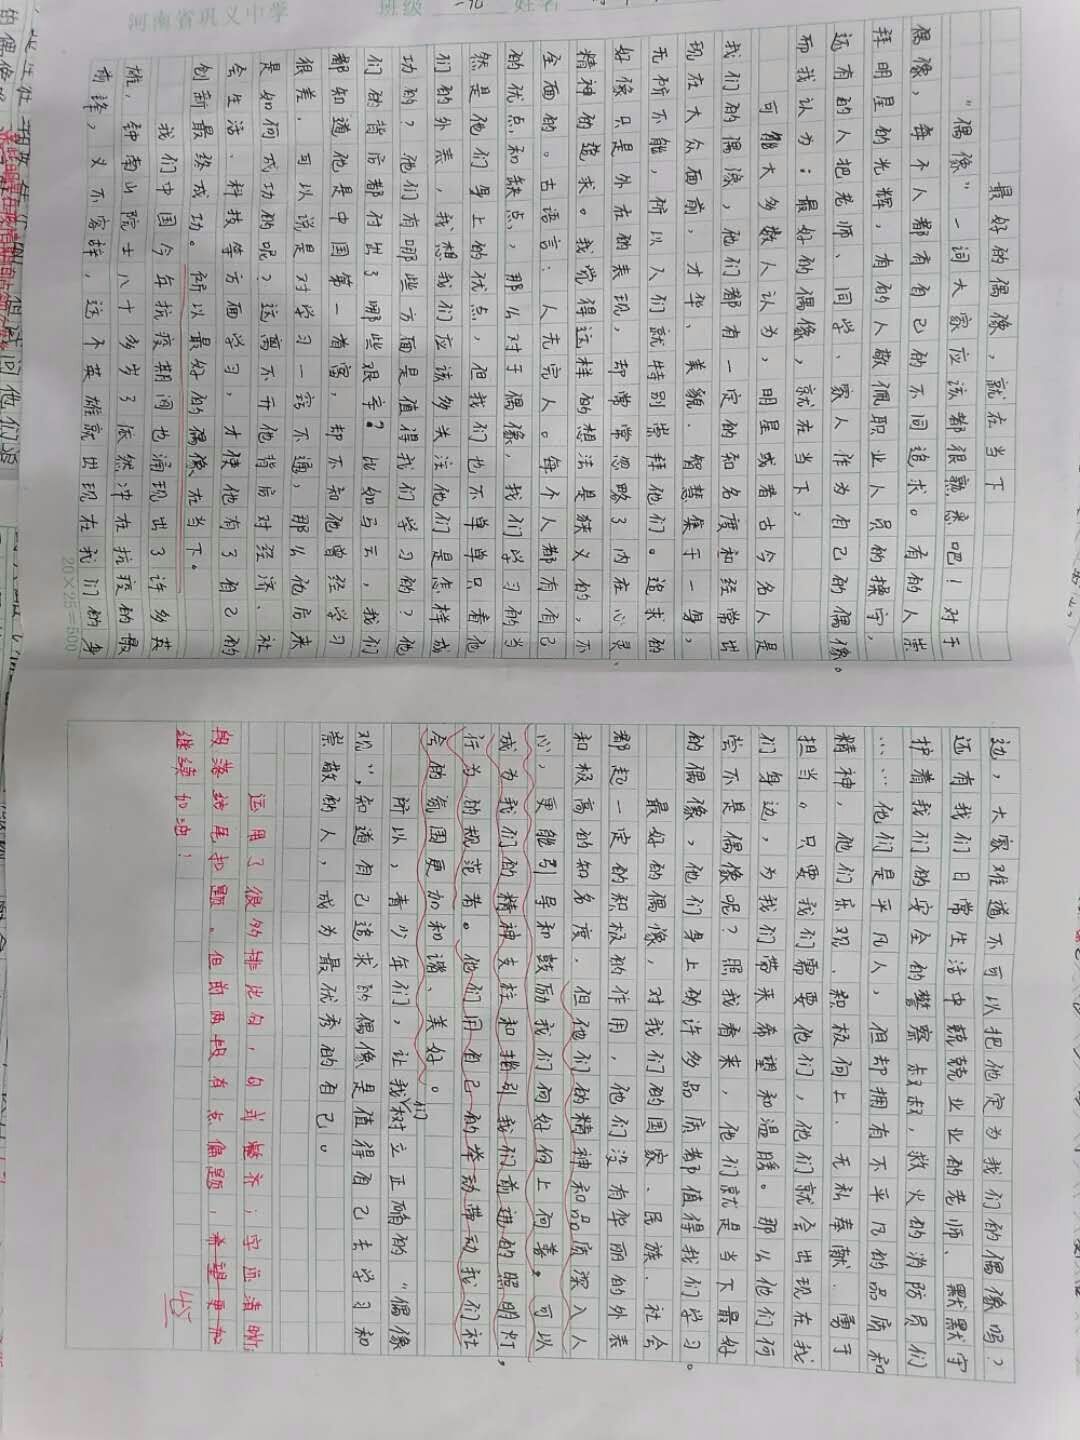 河南省巩义中学 班级 姓名
最好的偶像，就在当下
“偶像”一词大家应该都很熟悉吧！对于
偶像，每个人都有自己的不同追求。有的人崇
拜明星的光辉，有的人敬佩职业人员的操守，
还有的人把老师、同学、家人作为自己的偶像。
而我认为：最好的偶像，就在当下，
可能大多数人认为，明星或者古今名人是
我们的偶像，他们都有一定的知名度和经常出
现在大众面前，才华、美貌、智慧集于一身，
无所不能，所以人们就特别崇拜他们。追求的
好像只是外在的表现，却常常忽略了内在心灵
精神的追求。我觉得这样的想法是狭义的，不
全面的。古语言：人无完人。每个人都有自己
的优点和缺点，那么对于偶像，我们学习的当
然是他们身上的优点，但我们也不单单只看他
们的外表，我想我们应该多关注他们是怎样成
功的？他们有哪些方面是值得我们学习的？他
们的背后都付出了哪些艰辛？比如马云，我们
都知道他是中国第一首富，却不知他曾经学习
很差，可以说是对学习一窍不通，那么他后来
是如何成功的呢？这离不开他背后对经济、社
会生活、科技等方面学习，才使他有了自己的
创新最终成功。所以最好的偶像在当下。
我们中国今年抗疫期间也涌现出了许多英
雄，钟南山院士八十多岁了依然冲在抗疫的最
前锋，义不容辞，这个英雄就出现在我们的身
20×25=500
边，大家难道不可以把他定为我们的偶像吗？
还有我们日常生活中兢兢业业的老师、默默守
护着我们的安全的警察叔叔，救火的消防员们
……他们是平凡人，但却拥有不平凡的品质和
精神，他们乐观、积极向上、无私奉献、勇于
担当。只要我们需要他们，他们就会出现在我
们身边，为我们带来希望和温暖。那么他们何
尝不是偶像呢？照我看来，他们就是当下最好
的偶像，他们身上的许多品质都值得我们学习。
最好的偶像，对我们的国家、民族、社会
都起一定的积极的作用，他们没有华丽的外表
和极高的知名度，但他们的精神和品质深入人
心，更能引导和鼓励我们向好向上向善。可以
成为我们的精神支柱和指引我们前进的照明灯，
行为的规范者。他们用自己的举动带动我们社
会的氛围更加和谐、美好。
所以，青少年们，让我们树立正确的“偶像
观”，知道自己追求的偶像是值得自己去学习和
崇敬的人，成为最优秀的自己。
运用了很多排比句，句式整齐；字迹清晰；
段落结尾扣题。但前两段有点偏题，希望更加
继续加油！
45